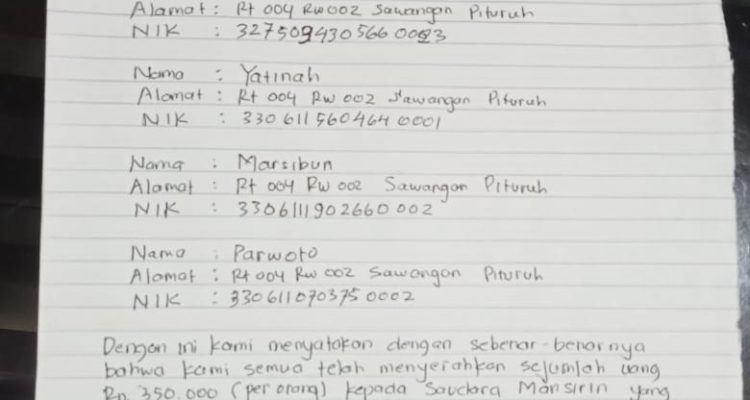 Alamat : Rt 004 Rw 002 Sawangan Pituruh
NIK : 3275094305660023
Nama : Yatinah
Alamat : Rt 004 Rw 002 Sawangan Pituruh
NIK : 3306115604640001
Nama : Marsibun
Alamat : Rt 004 Rw 002 Sawangan Pituruh
NIK : 3306111902660002
Nama : Parwoto
Alamat : Rt 004 Rw 002 Sawangan Pituruh
NIK : 3306110703750002
Dengan ini kami menyatakan dengan sebenar-benarnya
bahwa kami semua telah menyerahkan sejumlah uang
Rp. 350.000 (per orang) kepada Saudara Mansirin yang